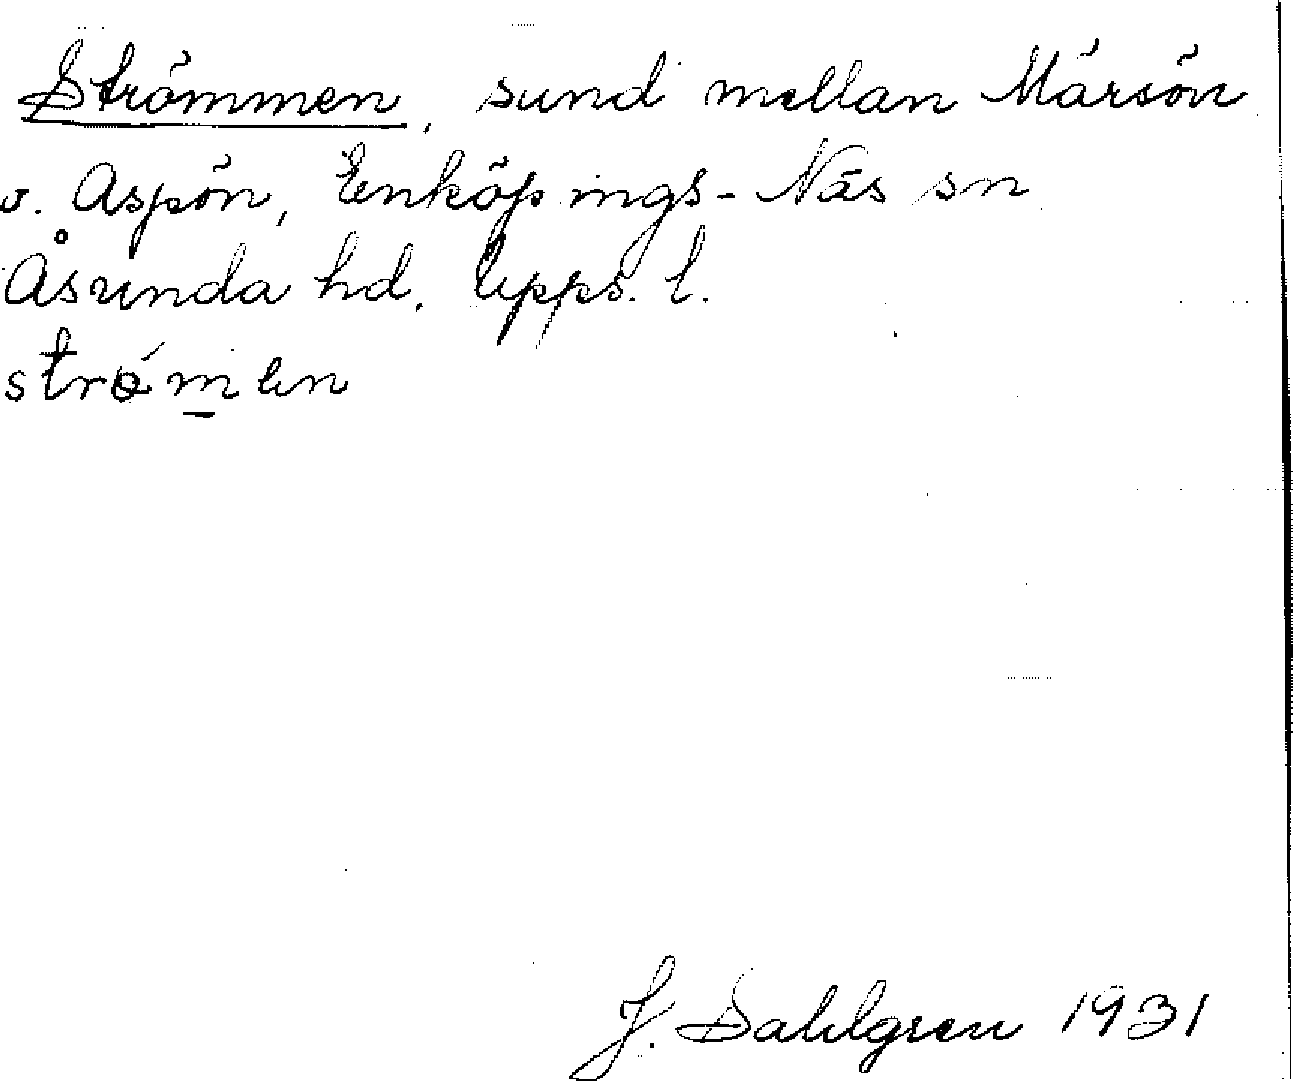 Strömmen, sund mellan Märsön
o. Aspön, Enköpings-Näs sn
Åsunda hd. Upps. l.
strömen
J. Dahlgren 1931